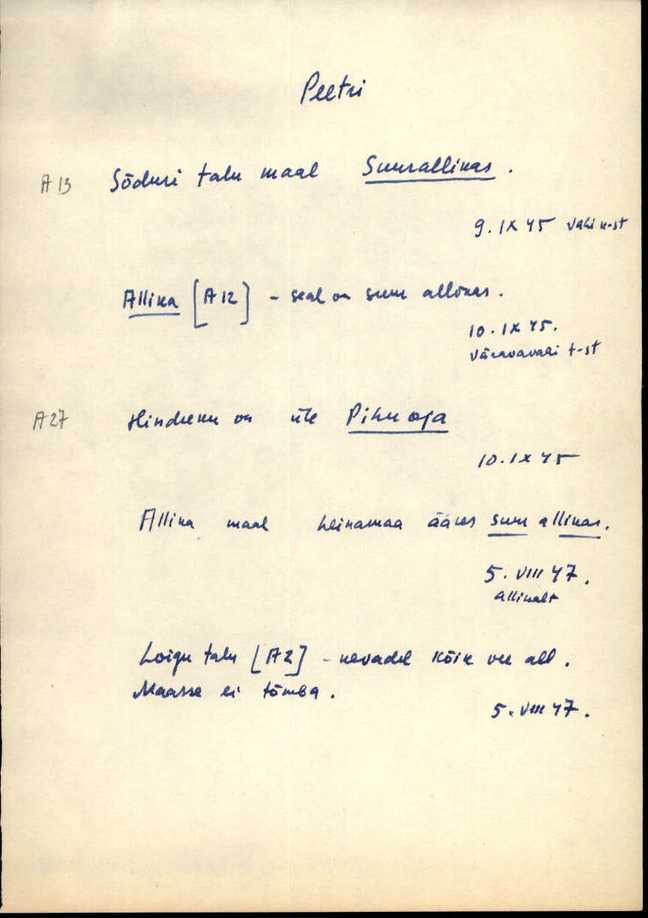 Peetri
A13 Sõduri talu maal Suurallikas.
9. IX 45 Vahi k-st
Allika [A12] - seal on suur allikas.
10. IX 45.
Väravavahi t-st
A27 Hindreku on üle Pihu oja
10. IX 45
Allika maal heinamaa ääres suur allikas.
5. VIII 47.
Allikalt
Loigu talu [A2] - kevadel kõik vee all.
Maasse ei tõmba.
5. VIII 47.